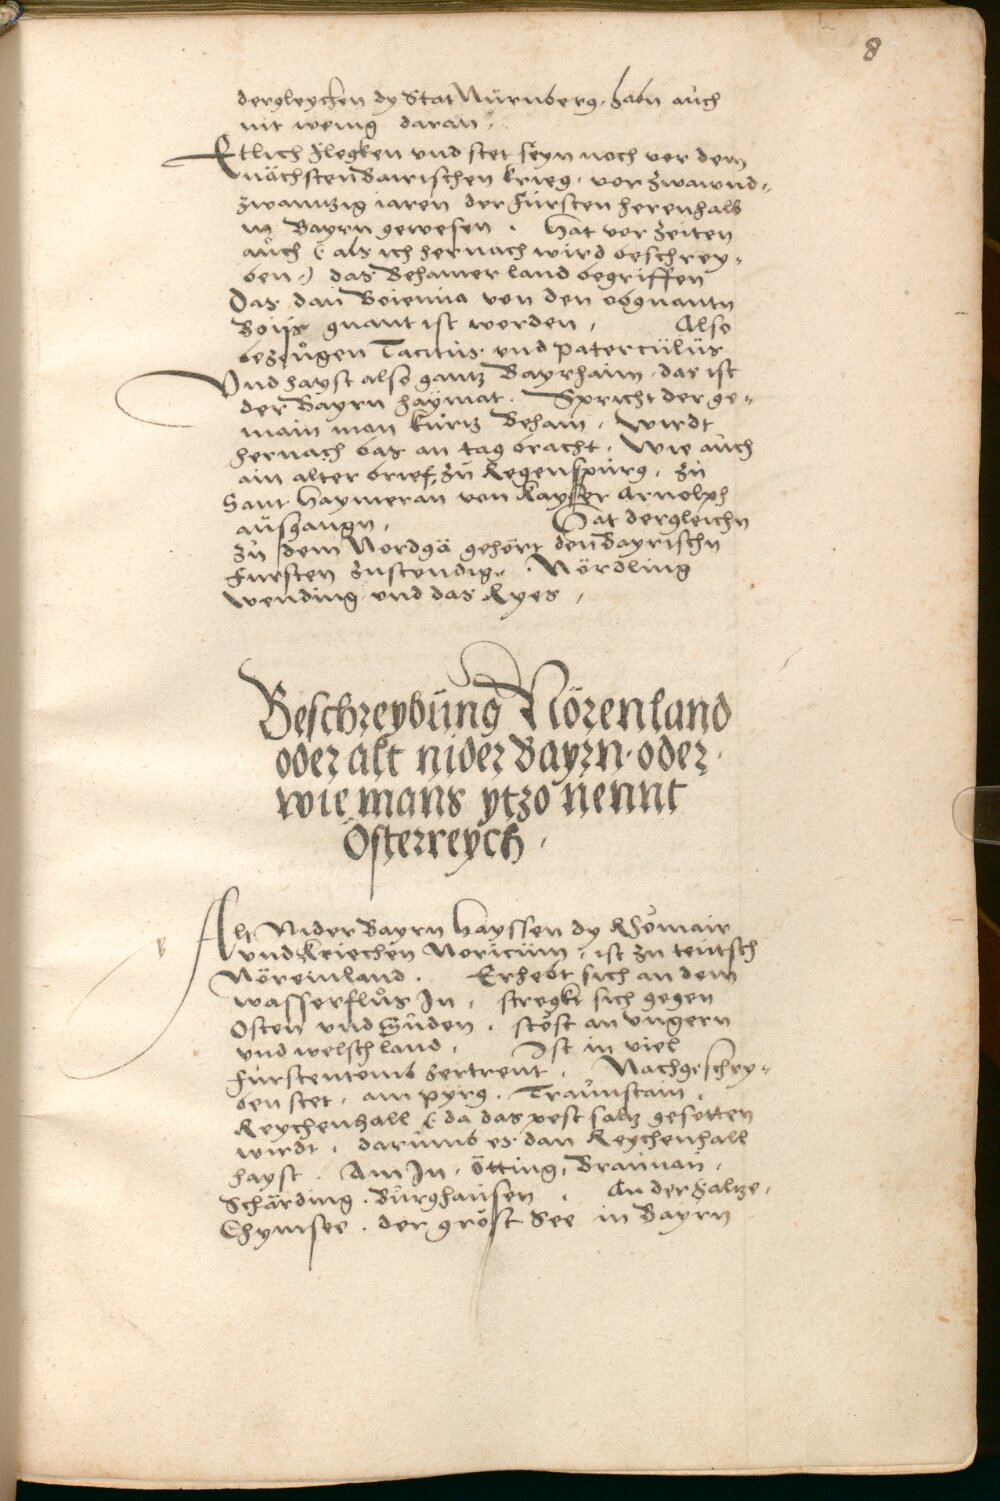 8
dergleychen dy Stat Nürnberg, habn aüch
nit wenig daran.
Etlich flegken vnd stet seyn noch vor dem
nächsten bairischen krieg, vor zwaiund-
zwantzig iaren der Fürsten herenhalb
in Bayrn gewesen. Hat vor zeiten
aüch (als ich hernach wird beschrey-
ben) das Behamer land begriffen
Das dan Boiemia von den obgnantn
Boijs gnant ist worden, Also
bezeügen Tacitüs vnd Patercülüs
Vnd hayst also gantz Bayrhaim, das ist
der Bayrn haymat. Spricht der ge-
main man kürtz Beham, Wirdt
hernach bas an tag bracht, Wie aüch
ain alter brief, zü Regenspürg, zü
Sant Haymeran von Kayser Arnolph
aüsgangn, Hat dergleichn
zü dem Nordgä gehört den bayrischn
Fürsten züstendig, Nördling
Wending vnd das Ryes,
Beschreybüng Nörenland
oder alt nider Bayrn, oder
wie mans ytzo nennt
Österreych,
Alt Nider Bayrn Hayssen dy Rhömair
vnd Kriechen Noricüm, ist zü teütsch
Nöreinland. Erhebt sich an dem
wasserflüs In, stregkt sich gegen
Osten vnd Süden, stöst an Vngern
vnd welschland, Ist in viel
Fürstentomb zertrent, Nachgeschry-
ben stet, am pyrg. Traünstain,
Reychenhall (da das pest saltz gesotten
wirdt, darümb es dan Reychenhall
hayst. Am In, ötting, Braünaü,
Schärding, Bürghaüsen, An der Saltze,
Chymsee, der gröst See in Bayrn